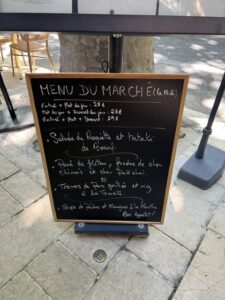 MENU DU MARCHÉ (Le Midi)
Entrée + Plat du jour : 25€
Plat du jour + Dessert du jour : 24€
Entrée + Plat + Dessert : 29€
• Salade de Roquette et Tataki
de Boeuf.
• Pavé de flétan, fondue de chou
chinois et chou Pakchoï.
• Travers de Porc grillés et riz
à la Tomate
• Soupe de pêches et Mangues à la Menthe
Bon Appétit!